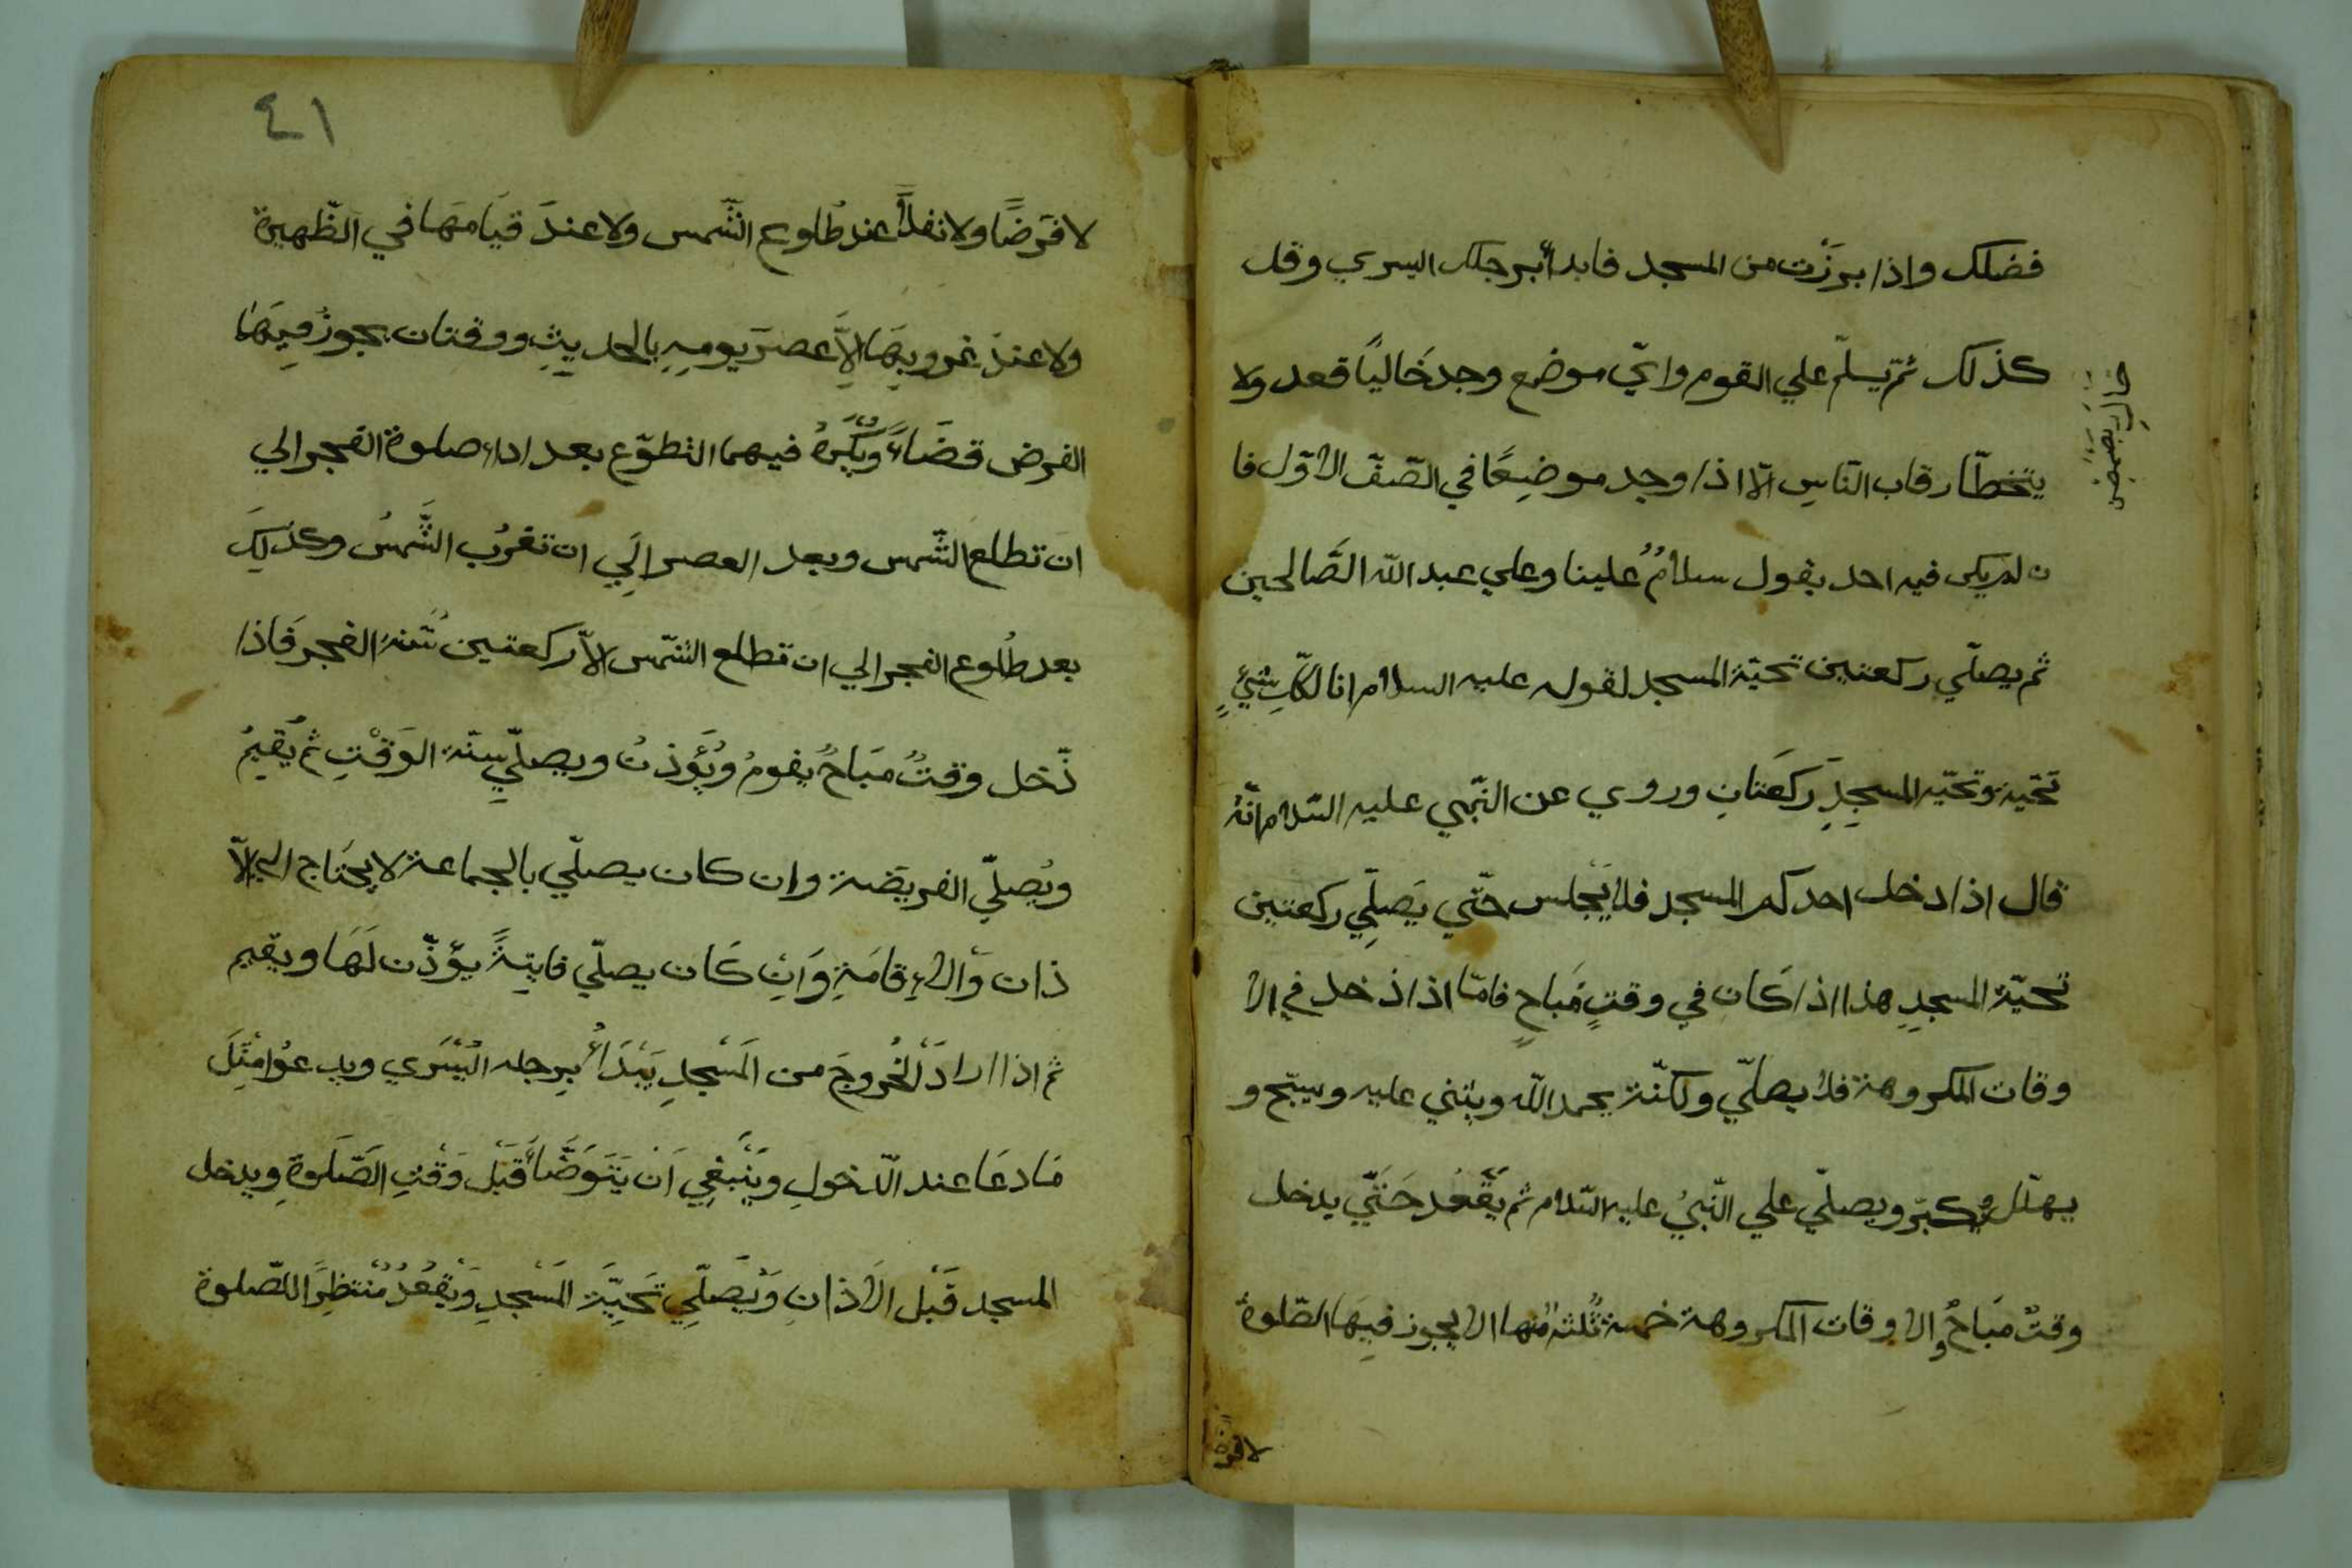 فضلك واذا برزت من المسجد فابدأ برجلك اليسري وقل
كذلك ثمّ يسلّم علي القوم وايّ موضع وجد خَاليًا قعد ولا
يتخطّا رقاب النّاسِ الّا اذا وجد موضِعًا في الصّفّ الاوّل فا
ن لم يكن فيه احد يقول سلامٌ علينا وعلي عبد الله الصَّالحين
ثم يصلّي ركعتين تحيّة المسجد لقوله عليه السلام انا لكلِّ شيءٍ
تحيّة وتحيّة المسجِدِ ركعَتانِ وروي عن النّبي عليه السّلام انّهُ
قال اذا دخل احدكم المسجد فلا يَجْلس حتّي يَصلِّي ركعتين
تحيّة المسجدِ هذا اذا كَان في وقتٍ مُباحٍ فامّا اذا ذخل في الا
وقات المكروهة فلا يصلّي ولكنّة يحمد الله ويثني عليه ويسبّح و
يهلّل ويكبّر ويصلّي علي النّبيُ عليه السّلام ثم يَقْعُد حَتّي يدخل
وقتٌ مُباحٌ والاوقات المكروهة خمسة ثلثة منها الا يجوز فيِهَا الصّلوة
لا فرضًا
لا فَرضًا ولا نفلاً عند طُلوع الشّمس ولا عندَ قيَامهَا في الظّهيرة
ولا عندَ غروبِهَا الاَّ عصرَ يومِهِ بالحديِثِ ووقتان يجوزُ فيِهَا
الفرض قضَاءً ويُكْرَهُ فيهما التطوّع بعد اداء صلوة الفجر الي
ان تطلع الشّمس وبعد العصر الَي ان تغرُب الشَّمسُ وكذلِكَ
بعد طُلوع الفجر الي ان تطلع الشّمس الاّ ركعتين سُنّة الفجر فَاذا
ذّخل وقتٌ مبَاحٌ يقومُ ويُؤذنُ ويصلّي سنّة الوَقْتِ ثم يُقيمُ
ويُصلّي الفريضة وان كان يصلّي بالجماعة لا يحتاج الي الاّ
ذان وَالاِقامَةِ وَانِ كَان يصلّي فايتِةً يؤذّن لَهَا ويقيم
ثم اذا ارادَ الخُروجَ من المَسْجدِ يَبْدَأُ بِرجله اليُسْرَي ويدعوُا مثِلَ
مَا دعَا عند الدّخولِ وَيَنْبَغِي اَنْ يَتَوَضَّأَ قَبْل وَقْتِ الصَّلَوةِ ويدخل
المسجد قَبْل الاَذانِ وَيُصَلّيِ تَحِيَّةَ المَسْجدِ وَيَقْعُدُ مُنْتظِرًا للصّلوة
٤١